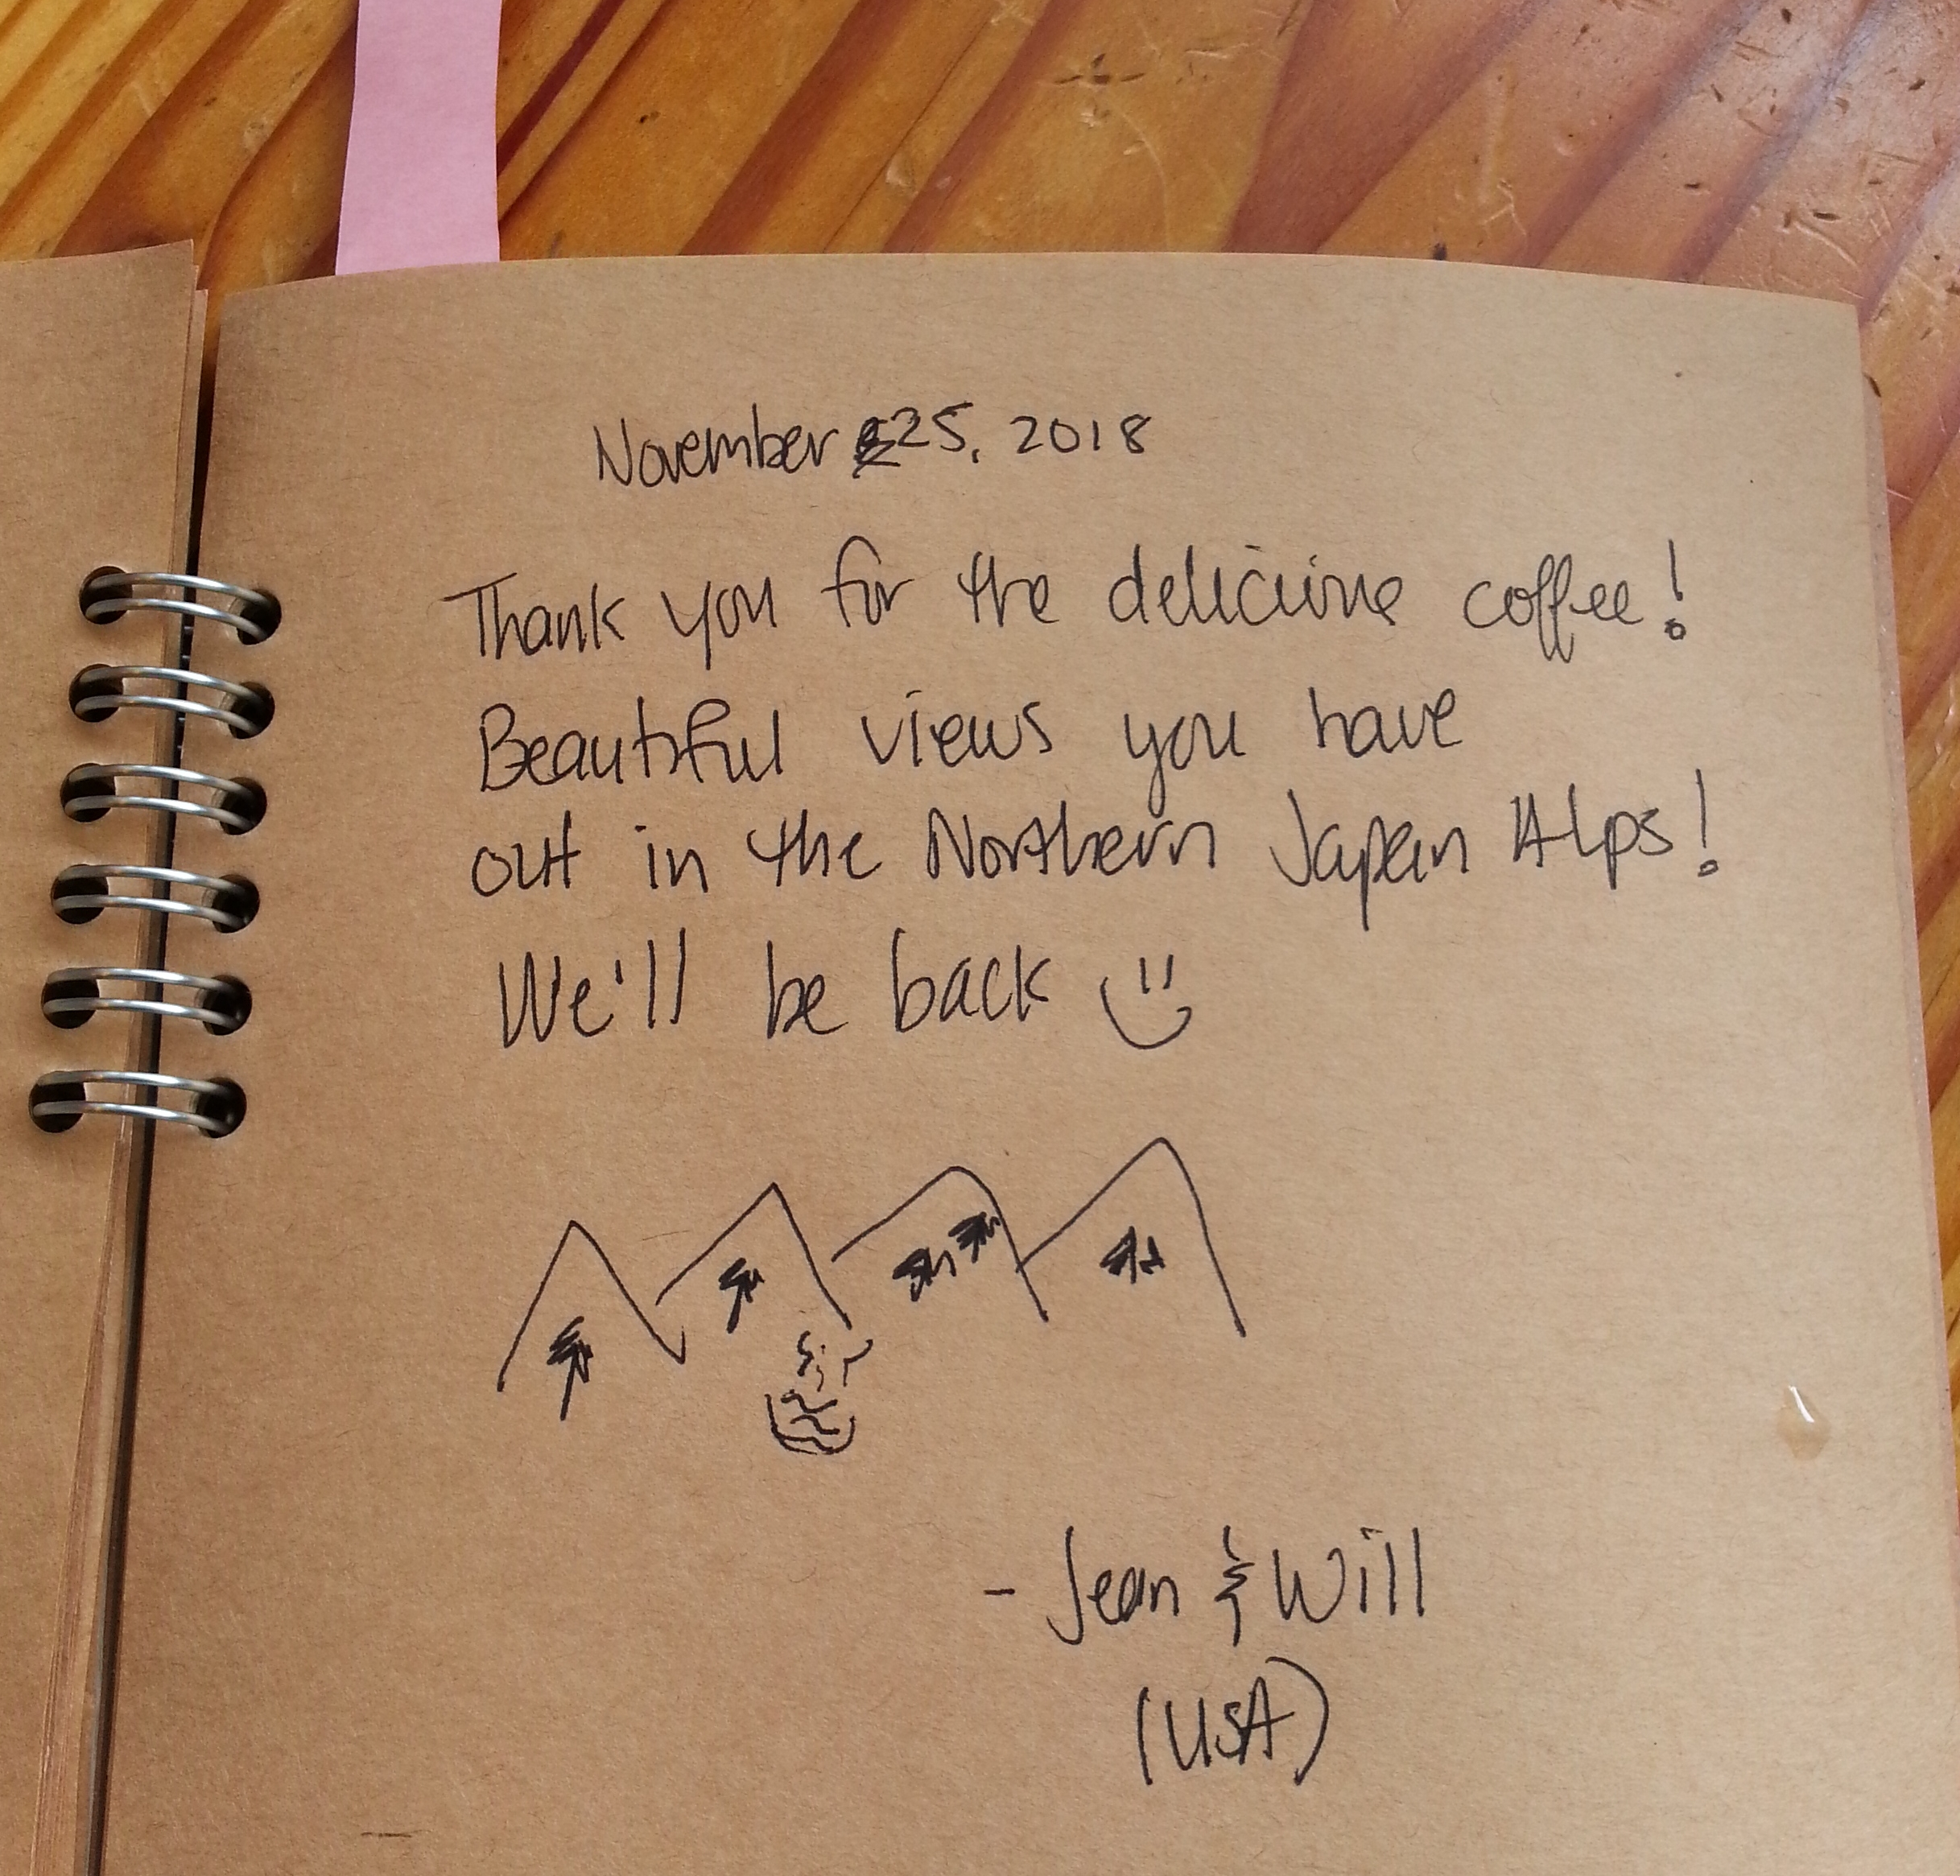 November 25, 2018
Thank you for the delicious coffee!
Beautiful views you have
out in the Northern Japan Alps!
We'll be back
- Jean & Will
(USA)